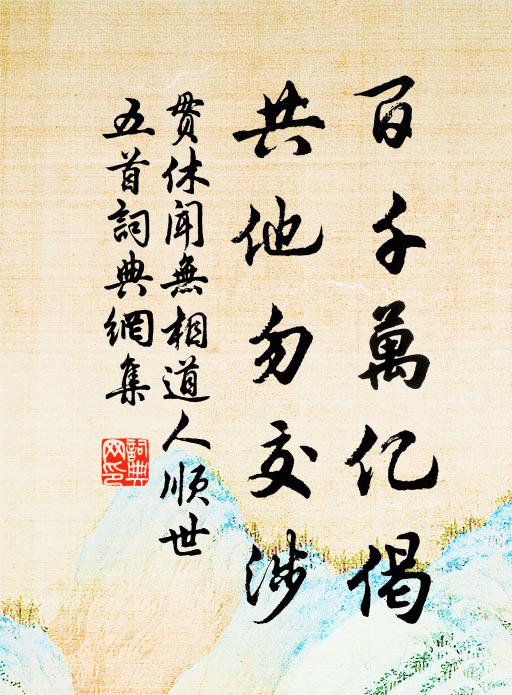 百千萬亿偈
共他勿交涉
贯休闻無相道人顺世
五首詞典網集
詞典
网印